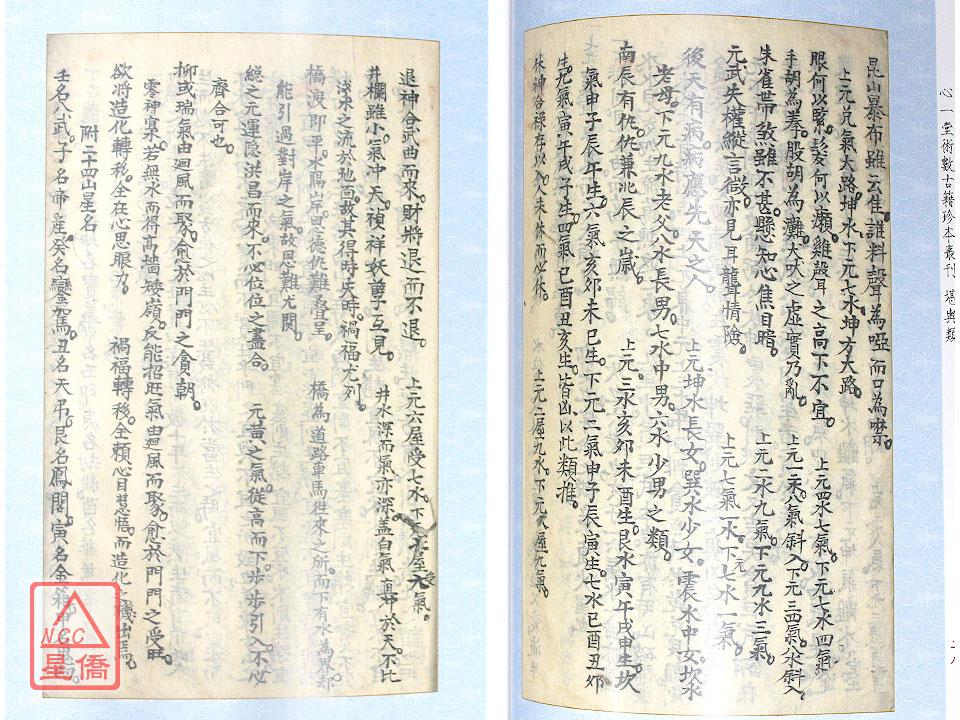 心一堂術數古籍珍本叢刊 堪輿類
昆山暴布雖云佳誰料聲為啞而口為噤
上元兄氣大路坤水下元七水坤方大路
眼何以緊髮何以瀕雞殼耳之高下不宜 上元四水七氣下元七水四氣
手胡為拳股胡為灘犬吠之虛實乃亂 上元一水八氣斜入下元三四氣八水斜入
朱雀帶煞雖不甚懸知心焦目暗 上元二水九氣下元九水三氣
元武失權縱言微亦見耳聾情險 上元七氣一水下元七水一氣
後天有病病應先天之人 上元坤水長女巽水少女震水中女坎水
老母下元九水老父八水長男七水中男六水少男之類
南辰有仇仇兼北辰之歲 上元三水亥卯未酉生艮水寅午戌申生坎
氣申子辰午生六氣亥卯未巳生下元二氣申子辰寅生七水巳酉丑卯
生九氣寅午戌子生四氣巳酉丑亥生皆凶以此類推
休神合祿存以入人未休而必休 上元二屋九水下元六屋九氣
退神合武曲而來財將退而不退 上元六屋受七水下元屋受九氣
井欄雖小氣冲天禎祥妖孽子互見 井水深而氣亦深盖白氣直冲於天不比
滾來之流於地面故其得時失時禍福尤列
橋渡即平水隔岸恩德仇難疊呈 橋為道路車馬往來之所而下有水為界却
能引過對岸之氣故恩難尤関
總之元運隐洪昌而來不必位位之盡合 元黃之氣從高而下步步引入不必
齊合可也
抑或瑞氣由廻風而聚愈於門門之貪朝
零神寡若無水而得高墻矮嶺反能招旺氣由廻風而聚愈於門門之受旺
欲將造化轉移全在心思眼力 禍福轉移全頼心目慧悟而造化之機出焉
附二十四山星名
壬名八武子名帝座癸名鑾駕丑名天弔艮名鳳閣寅名金箱
NCC
星僑